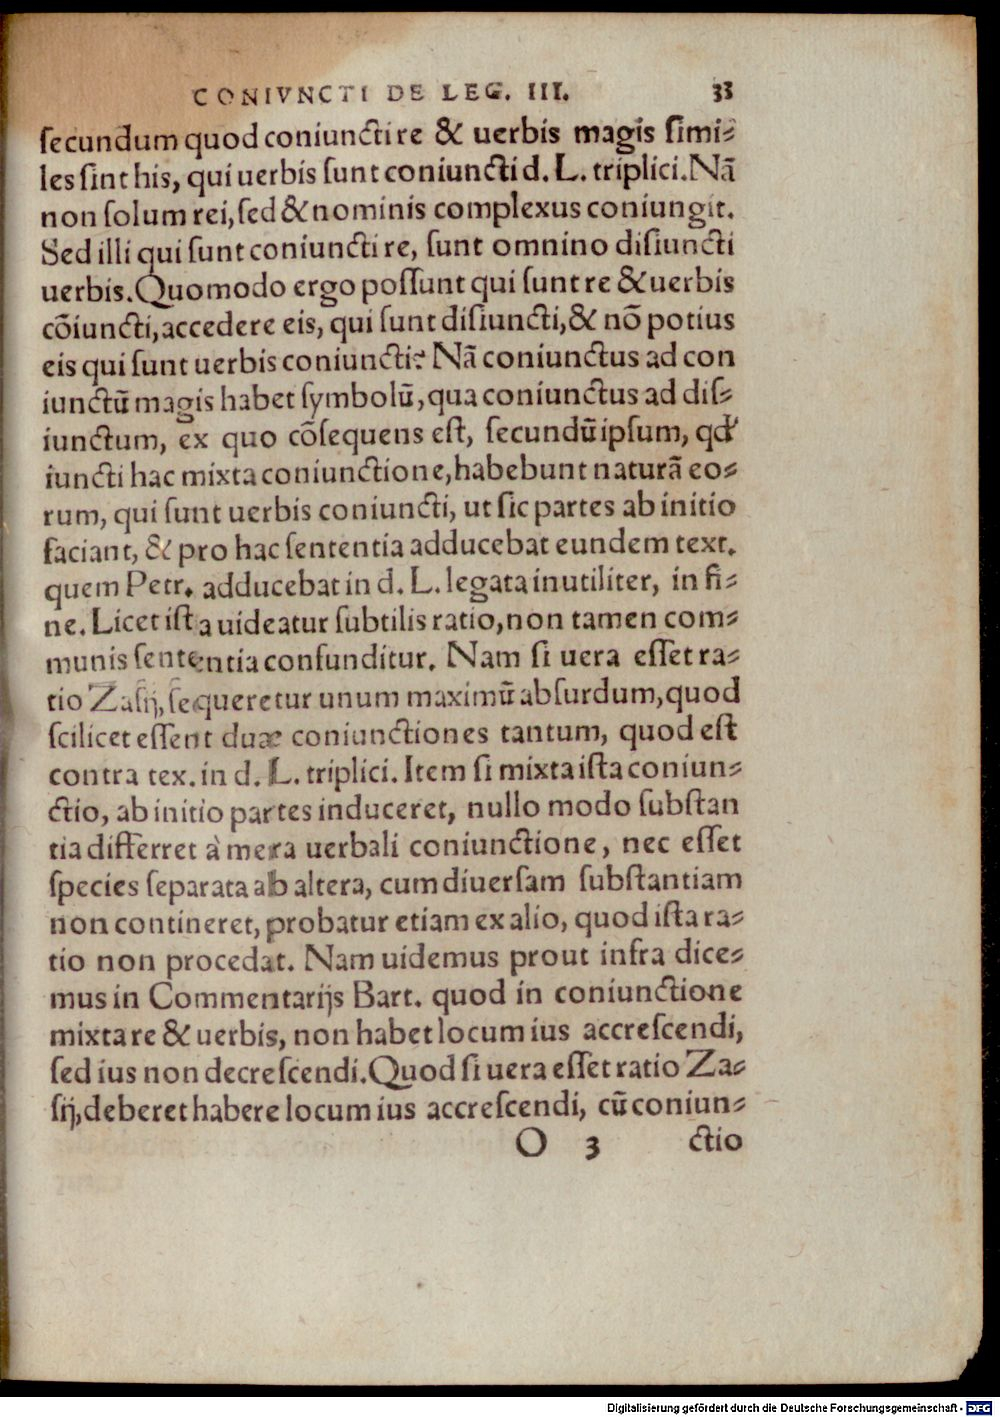 CONIVNCTI DE LEG. III. 33
ſecundum quod coniuncti re & uerbis magis ſimi-
les ſint his, qui uerbis ſunt coniuncti d. L. triplici. Nā
non ſolum rei, ſed & nominis complexus coniungit.
Sed illi qui ſunt coniuncti re, ſunt omnino diſiuncti
uerbis. Quomodo ergo poſſunt qui ſunt re & uerbis
cōiuncti, accedere eis, qui ſunt diſiuncti, & nō potius
eis qui ſunt uerbis coniuncti? Nā coniunctus ad con
iunctū magis habet ſymbolū, qua coniunctus ad diſ-
iunctum, ex quo cōſequens eſt, ſecundū ipſum, qd'
iuncti hac mixta coniunctione, habebunt naturā eo-
rum, qui ſunt uerbis coniuncti, ut ſic partes ab initio
faciant, & pro hac ſententia adducebat eundem text.
quem Petr. adducebat in d. L. legata inutiliter, in fi-
ne. Licet iſta uideatur ſubtilis ratio, non tamen com-
munis ſententia confunditur. Nam ſi uera eſſet ra-
tio Zaſij, ſequeretur unum maximū abſurdum, quod
ſcilicet eſſent duæ coniunctiones tantum, quod eſt
contra tex. in d. L. triplici. Item ſi mixta iſta coniun-
ctio, ab initio partes induceret, nullo modo ſubſtan
tia differret à mera uerbali coniunctione, nec eſſet
ſpecies ſeparata ab altera, cum diuerſam ſubſtantiam
non contineret, probatur etiam ex alio, quod iſta ra-
tio non procedat. Nam uidemus prout infra dice-
mus in Commentarijs Bart. quod in coniunctione
mixta re & uerbis, non habet locum ius accreſcendi,
ſed ius non decreſcendi. Quod ſi uera eſſet ratio Za-
ſij, deberet habere locum ius accreſcendi, cū coniun-
O 3 ctio
Digitalisierung gefördert durch die Deutsche Forschungsgemeinschaft - DFG